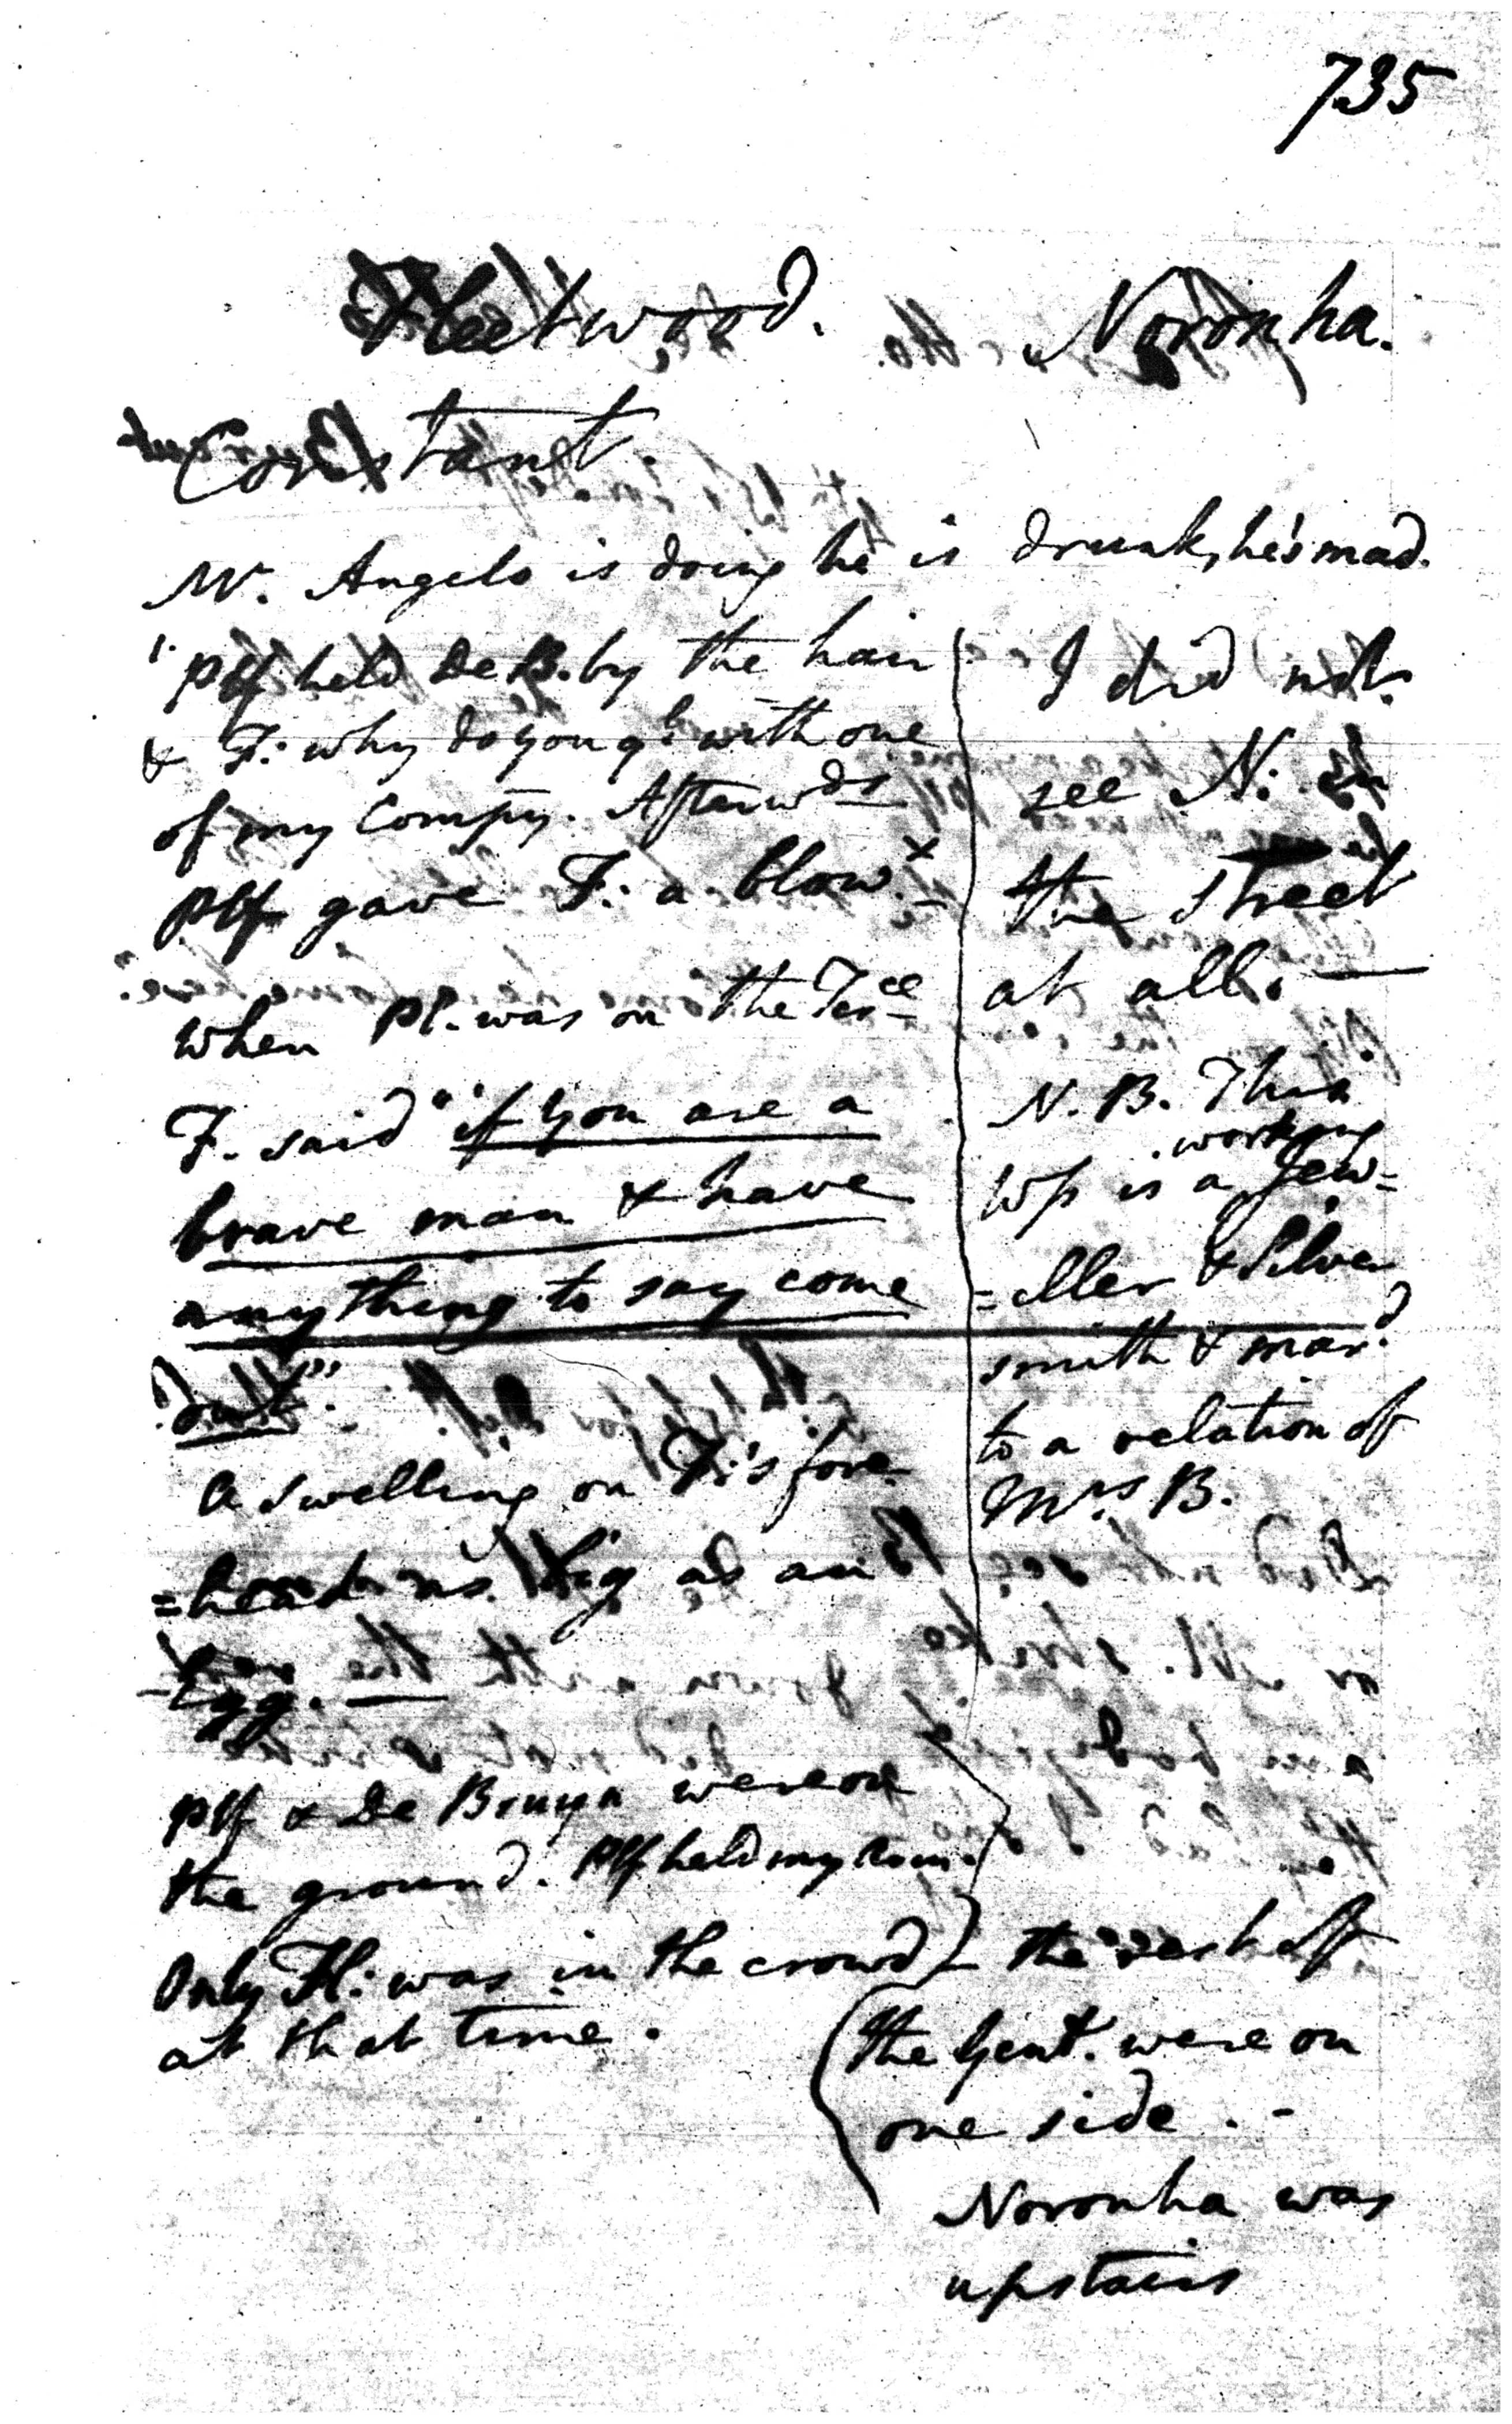 735
Fleetwood. Noronha.
Constant.
Mr. Angelo is doing he is drunk, he's mad.
1. Plf held De B. by the hair
& F: why do you ql. with one
of my Compy. Afterwds
Plf gave F: a blow.x
when Pl. was on the Terce
F. said "if you are a
brave man & have
anything to say come
out".
A swelling on F:'s fore-
=head as big as an
Egg. —
Plf & De Bruyn were on
the ground. Plf held my arm.
Only Fl: was in the crowd
at that time.
I did not
see N: in
the street
at all. —
N. B. This
working
Wss is a Jew-
=eller & Silver
smith & mard
to a relation of
Mrs B.
the rest of
the Gent. were on
one side. -
Noronha was
upstairs